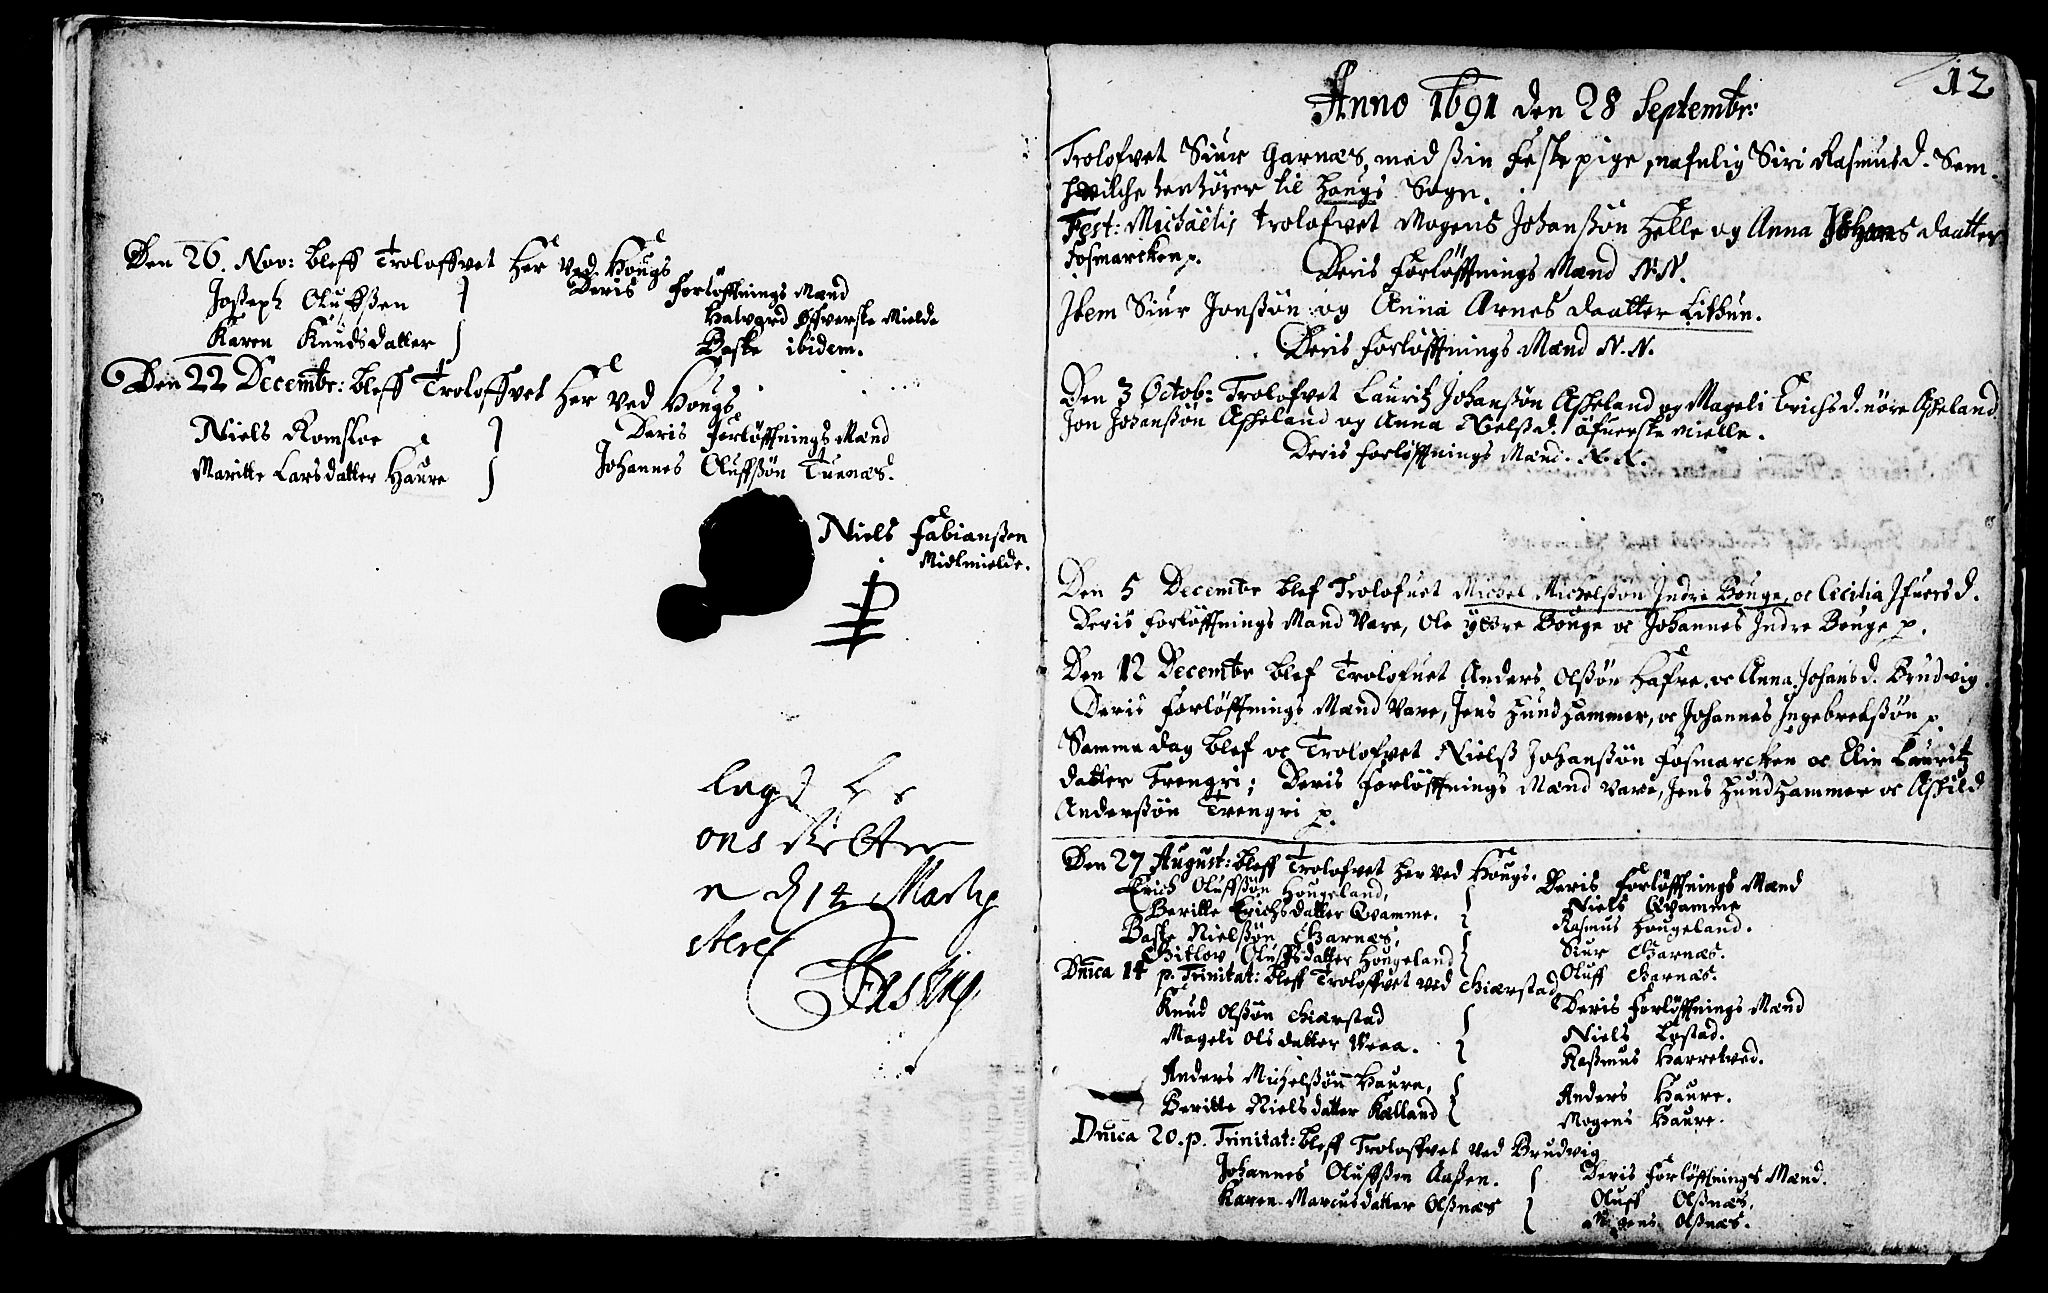 Den 26. Nov: bleff Troloffvet her ved Hougs
Joseph Olufßen
Karen Knudsdatter
Deris Forlöffnings Mænd
Halvard Øffverste Mielde
Baste ibidem.
Den 22 Decembr: bleff Troloffvet her ved Hougs
Niels Romsloe
Maritte Larsdatter Haure
Deris Forlöffnings Mænd
Johannes Oluffßön Tunæs.
Niels Fabianßen
Midtmielde.
ons
14 Marty
12
Anno 1691 den 28 Septembr:
Trolofvet Siur Garnæs med ßin Festepige, nafnlig Siri Rasmusd. Sem
hvilche henhörer til Hougs Sogn.
Fest: Michaëlis trolofvet Mogens Johanßön Helle og Anna Johans daatter
Fosmarcken p.
Deris Forlöffnings Mænd N.N.
Item Siur Jonßön og Anna Arnes daatter Lithun.
Deris Forlöffnings Mænd N.N.
Den 3 Octob: Trolofvet Lauritz Johanßön Aßheland og Mageli Erichsd. nöre Aßheland
Jon Johanßön Aßheland og Anna Nielßd. öfuerste Mielle.
Deris Forlöffnings Mænd. N.N.
Den 5 Decembr blef Trolofuet Michel Michelßön Indre Bouge, oc Cecilia Ifuersd.
Deris Forlöffnings Mænd Vare, Ole yttre Bouge oc Johannes Indre Bouge p.
Den 12 Decembr blef Trolofuet Anders Olßön Hafre, oc Anna Johansd. Brudvig.
Deris Forlöffnings Mænd Vare, Jens Hundhammer, oc Johannes Ingebretßön p
Samme dag blef oc Trolofvet Nielß Johanßön Fosmarcken oc Elin Lauritz
datter Trengri; Deris Forlöffnings Mænd Vare, Jens Hundhammer oc Aßkild
Anderßön Trengri p.
Den 27 August: bleff Trolofvet her ved Hougs.
Erich Oluffßön Hougeland,
Beritte Erichsdatter Qvamme.
Baste Nielßön Garnæs,
Gitlov Oluffsdatter Hougeland
Deris Forlöffnings Mænd
Niels Qvamme
Rasmus Hougeland.
Siur Garnæs.
Oluff Garnæs.
Dnica 14 p. Trinitat: bleff Troloffvet ved Giærstad
Knud Olßön Giærstad
Mageli Olsdatter Veaa.
Anders Michelßön Haure,
Beritte Nielsdatter Kælland
Deris Forlöffnings Mænd
Niels Lostad.
Raßmus Harretved.
Anders Haure.
Mogens Haure.
Dnica 20. p. Trinitat: bleff Troloffvet ved Brudvig
Johannes Oluffßen Aaßen.
Karen Marcusdatter Olßnæs
Deris Forlöffnings Mænd.
Oluff Olßnæs,
Mogens Olßnæs.